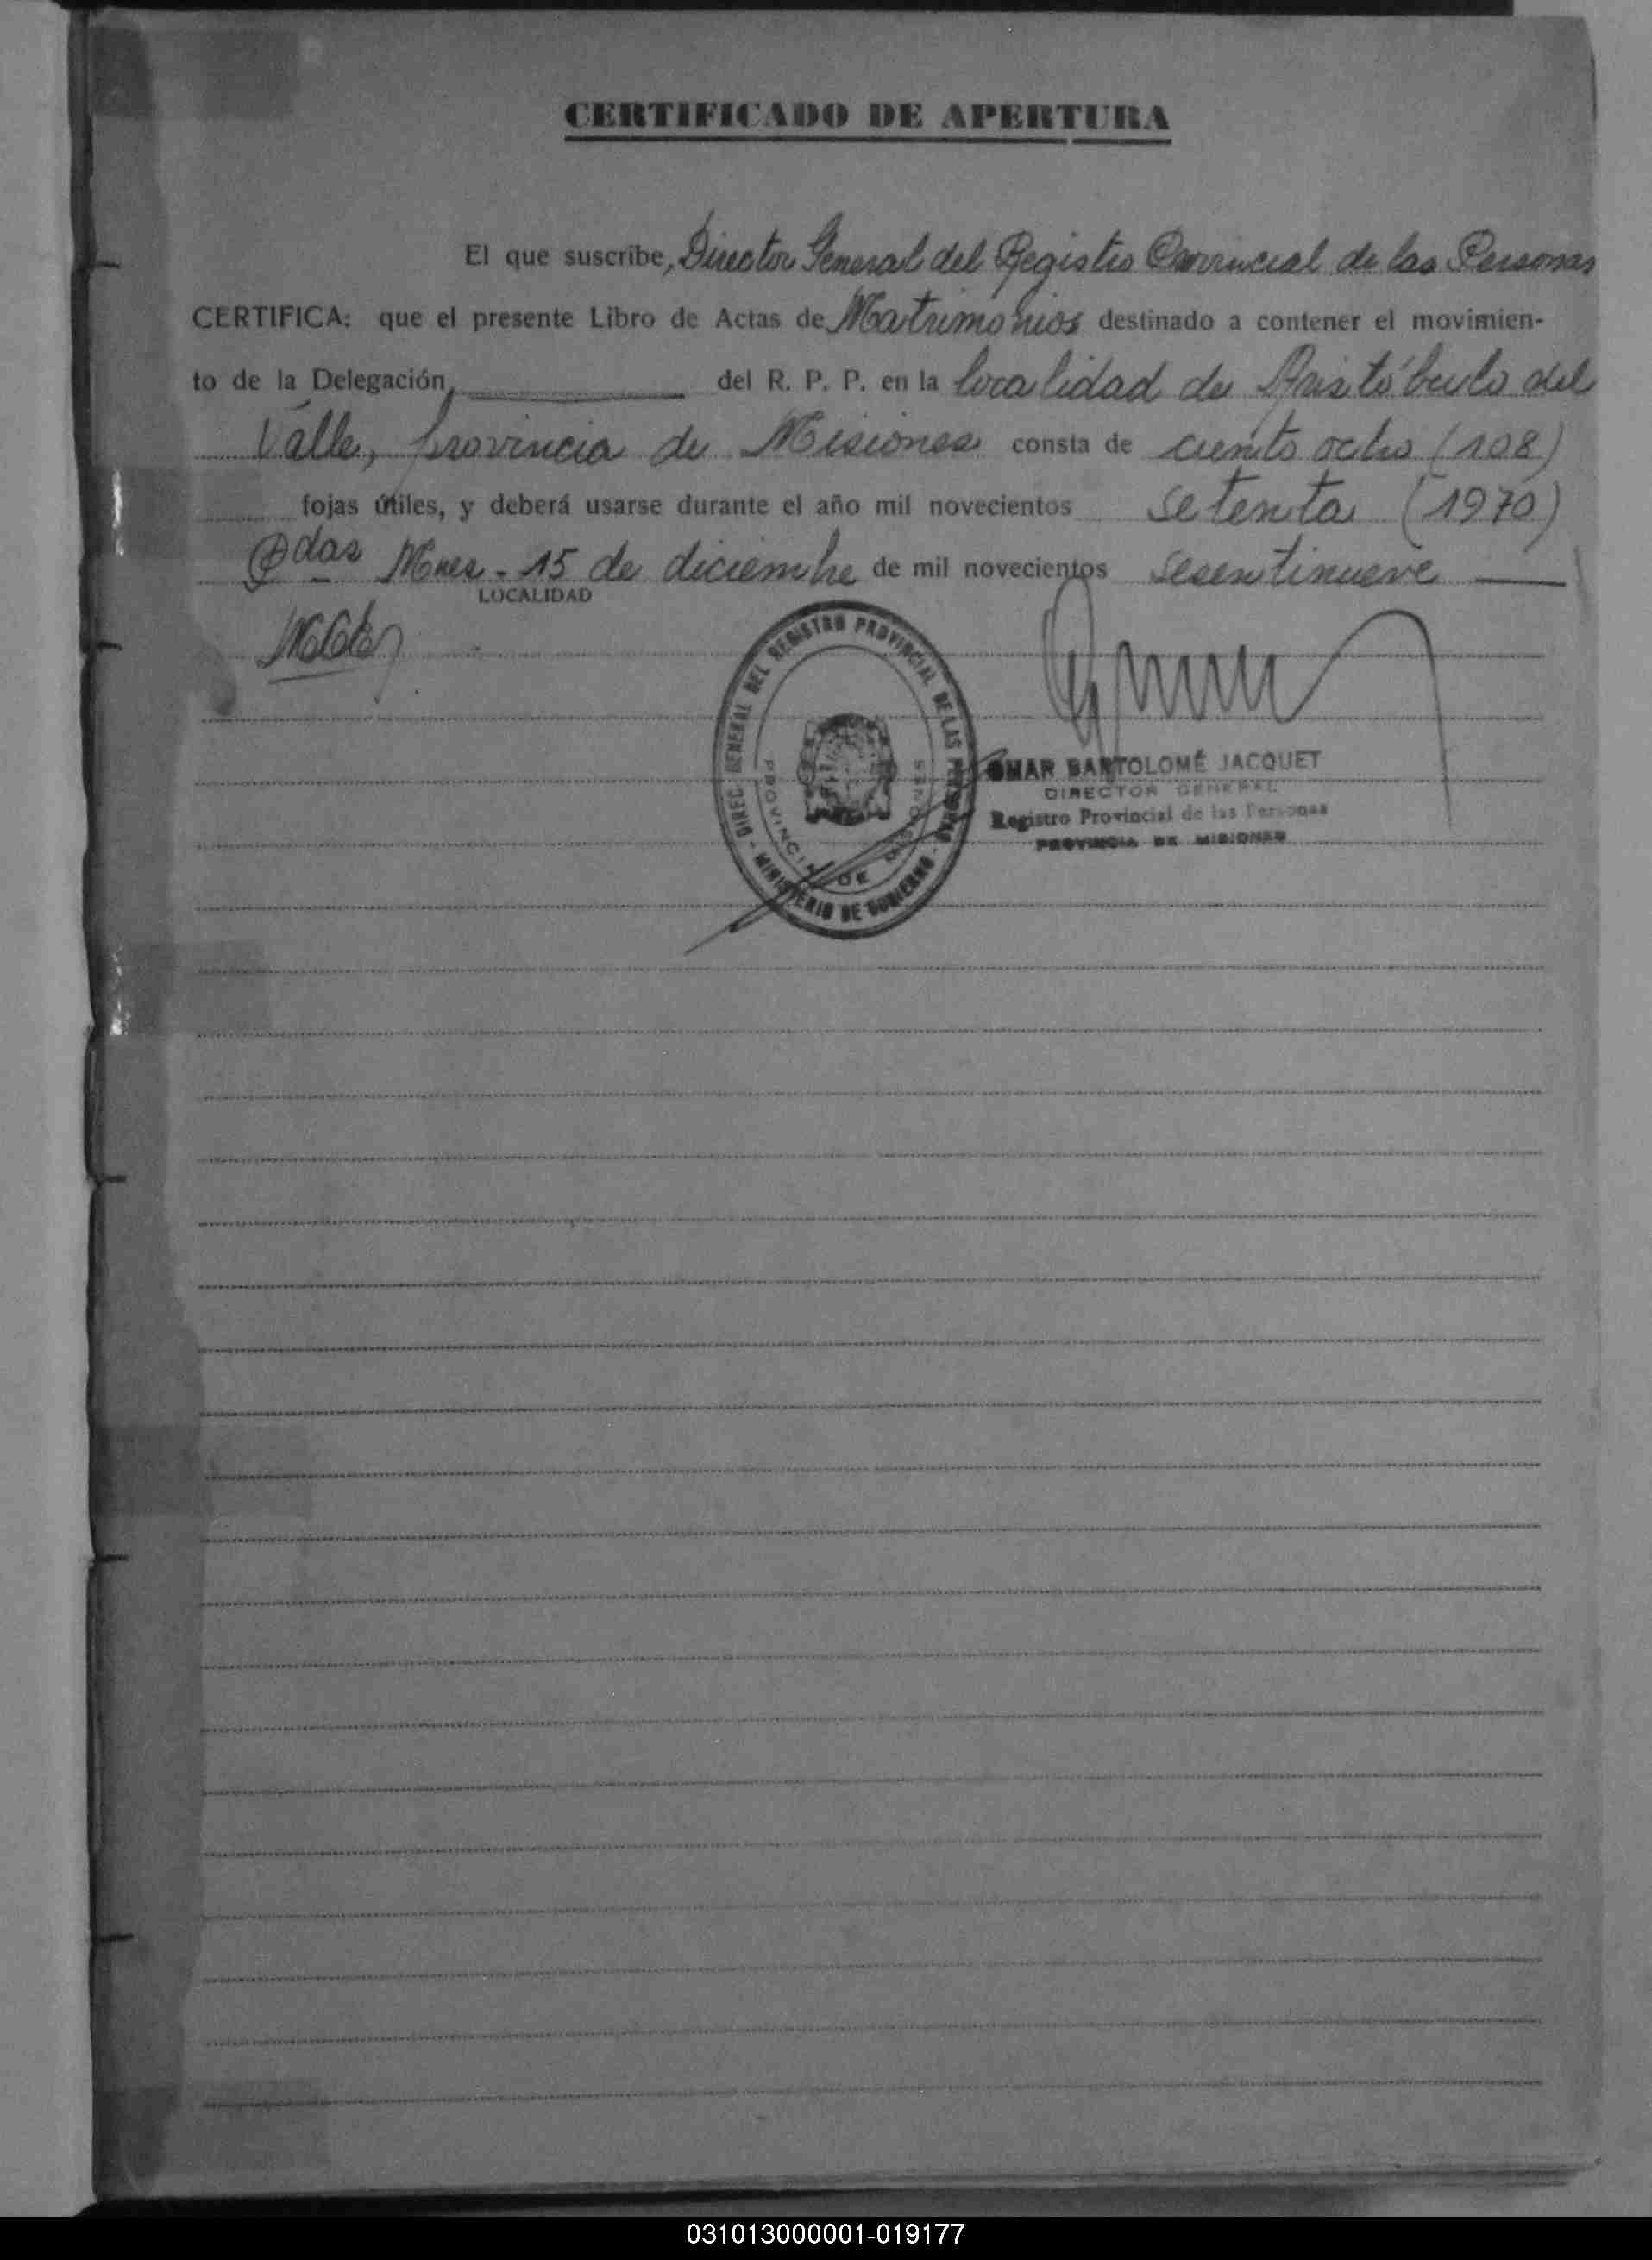 CERTIFICADO DE APERTURA
El que suscribe, Director General del Registro Provincial de las Personas
CERTIFICA: que el presente Libro de Actas de Matrimonios destinado a contener el movimien-
to de la Delegación, del R. P. P. en la localidad de Aristóbulo del
Valle, provincia de Misiones consta de ciento ocho (108)
fojas útiles, y deberá usarse durante el año mil novecientos setenta (1970)
Pdas Mnes. - 15 de diciembre de mil novecientos sesentinueve
LOCALIDAD
DIREC. GENERAL DEL REGISTRO PROVINCIAL DE LAS PERSONAS
PROVINCIA DE MISIONES
- MINISTERIO DE GOBIERNO -
OMAR BARTOLOMÉ JACQUET
DIRECTOR GENERAL
Registro Provincial de las Personas
PROVINCIA DE MISIONES
031013000001-019177